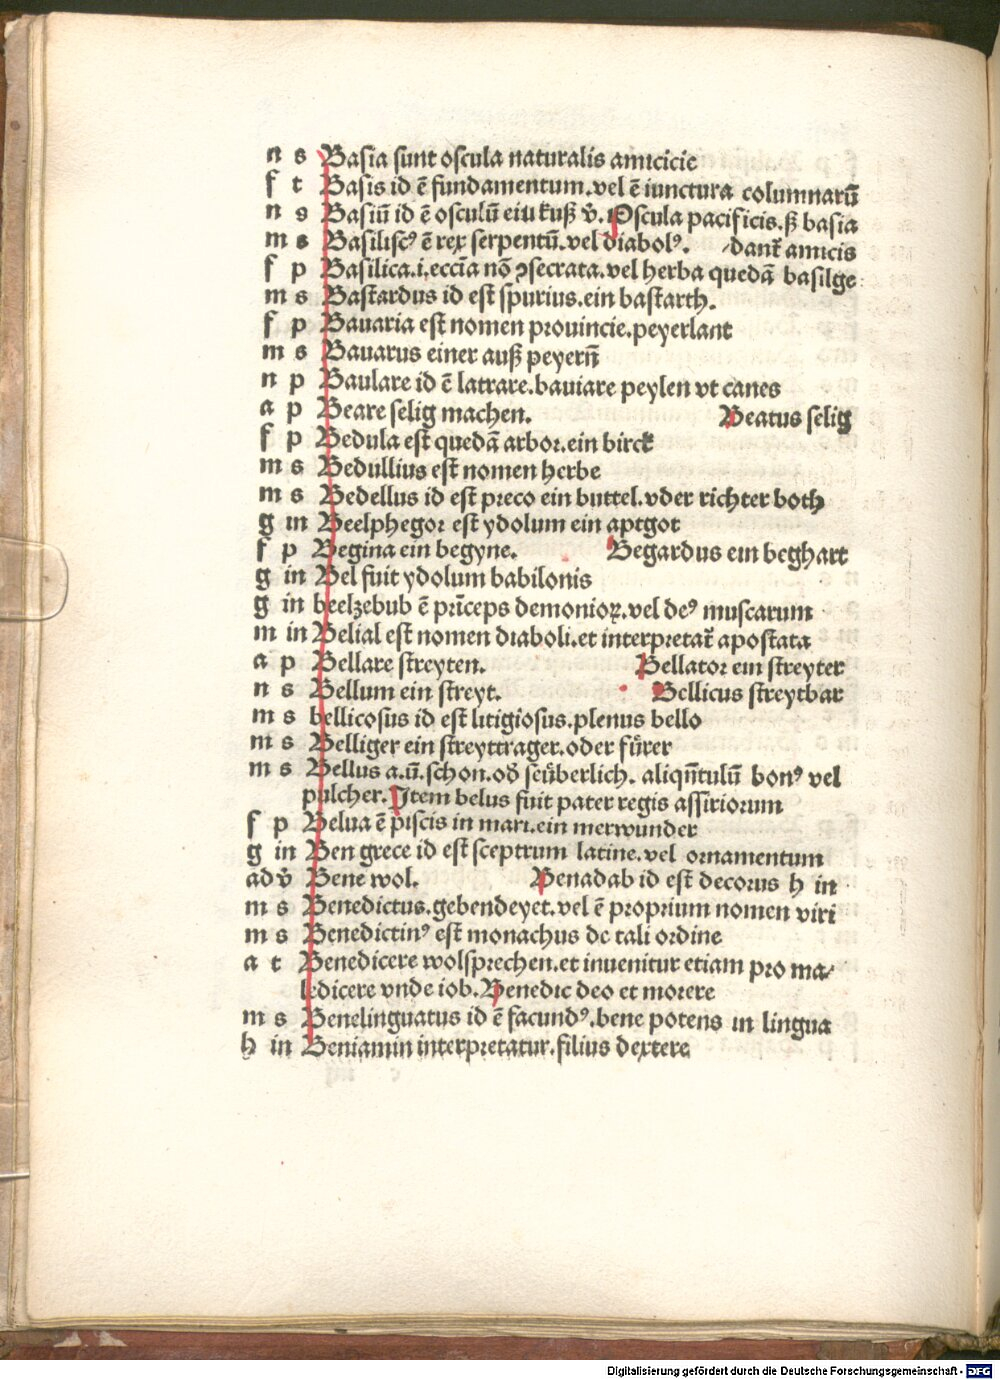 n s Basia sunt oscula naturalis amicicie
f t Basis id ē fundamentum.vel ē iunctura columnarū
n s Basiū id ē osculū ein kuß v̄. Oscula pacificis.ß basia
m s Basiliscꝰ ē rex serpentū.vel diabolꝰ. dant̄ amicis
f p Basilica.i.eccīa nō ꝯsecrata.vel herba quedā basilge
m s Bastardus id est spurius.ein bastarth.
f p Bauaria est nomen prouincie.peyerlant
m s Bauarus einer auß peyern̄
n p Baulare id ē latrare.bauiare peylen vt canes
a p Beare selig machen. Beatus selig
f p Bedula est quedā arbor.ein birck
m s Bedullius est nomen herbe
m s Bedellus id est preco ein buttel.vder richter both
g in Beelphegor est ydolum ein aptgot
f p Begina ein begyne. Begardus ein beghart
g in Bel fuit ydolum babilonis
g in beelzebub ē prīceps demonioꝝ.vel deꝰ muscarum
m in Belial est nomen diaboli.et interpretat̄ apostata
a p Bellare streyten. Bellator ein streyter
n s Bellum ein streyt. Bellicus streytbar
m s bellicosus id est litigiosus.plenus bello
m s Belliger ein streyttrager.oder fürer
m s Bellus a.ū.schon.od̄ seüberlich. aliqn̄tulū bonꝰ vel
pulcher. Item belus fuit pater regis assiriorum
f p Belua ē piscis in mari.ein merwunder
g in Ben grece id est sceptrum latine.vel ornamentum
ad v̄ Bene wol. Benadab id est decorus h in
m s Benedictus.gebendeyet.vel ē proprium nomen viri
m s Benedictinꝰ est monachus de tali ordine
a t Benedicere wolsprechen.et inuenitur etiam pro ma/
ledicere vnde iob. Benedic deo et morere
m s Benelinguatus id ē facundꝰ.bene potens in lingua
h in Beniamin interpretatur.filius dextere
Digitalisierung gefördert durch die Deutsche Forschungsgemeinschaft - DFG